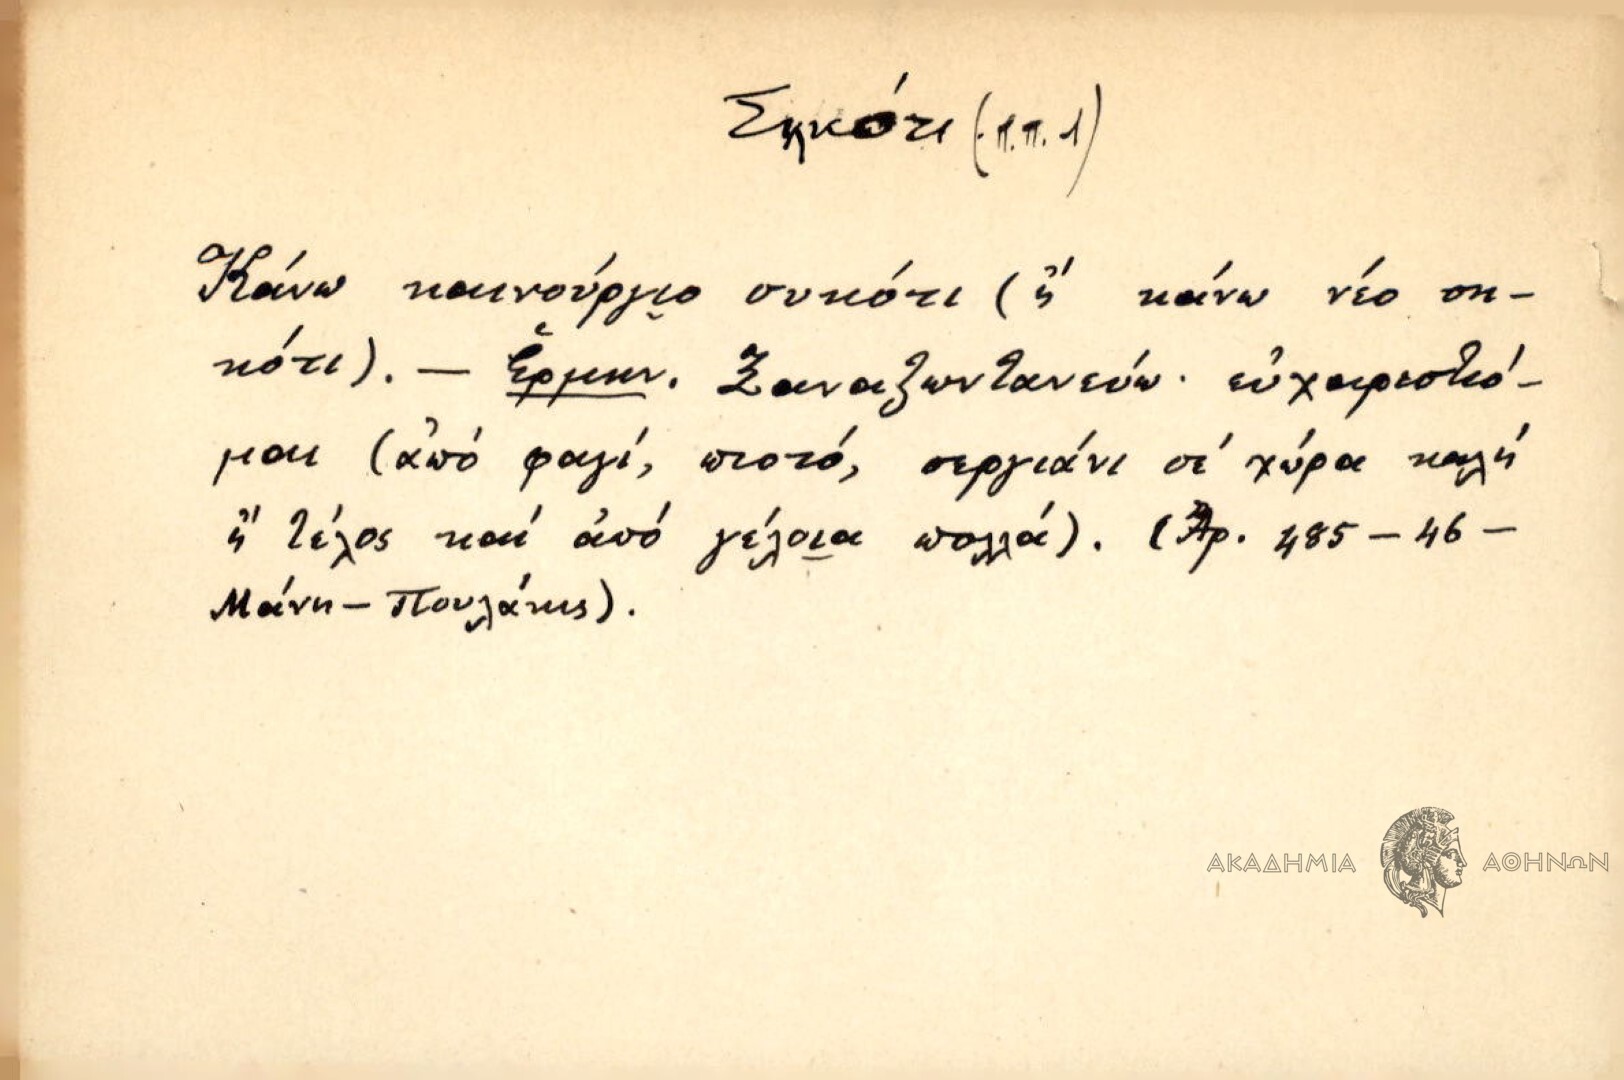 Σηκότι (π.π. 1)
Κάνω καινούργι̮ο συκότι (ἤ κάνω νέο ση-
κότι). — Ἑρμην. Ξαναζωντανεύω· εὐχαριστιό-
μαι (ἀπό φαγί, πιοτό, σεργιάνι σέ χώρα καλή
ἤ τέλος καί ἀπό γέλοι̮α πολλά). (Ἀρ. 485 – 46 –
Μάνη – Πουλάκης).
ΑΚΑΔΗΜΙΑ ΑΘΗΝΩΝ